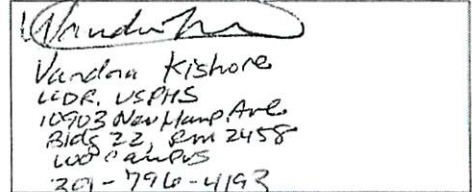 Vandna Kishore
LCDR, USPHS
10903 New Hamp Ave
Bldg 22, Rm 2458
WO Campus
301-796-4193